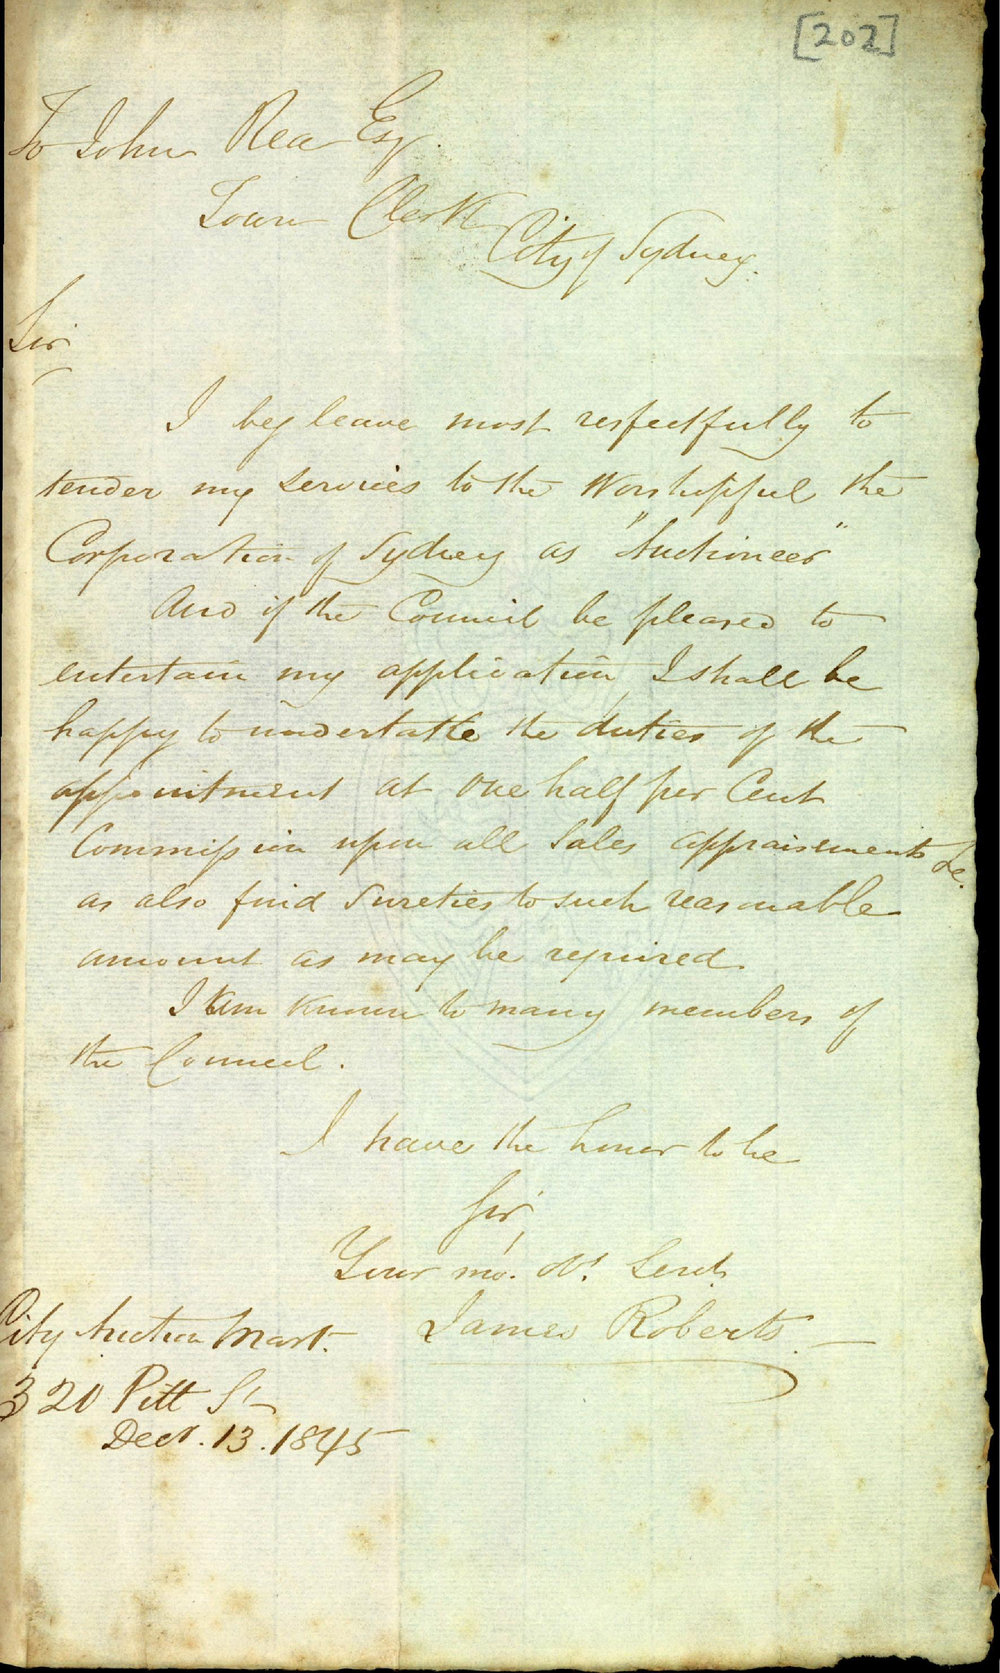 [202]
To John Rea Esqr.
Town Clerk
City of Sydney.
Sir
I beg leave most respectfully to
tender my services to the Worshipful the
Corporation of Sydney as "Auctioneer"
And if the Council be pleased to
entertain my application, I shall be
happy to undertake the duties of the
appointment at One half per Cent
Commission upon all Sales appraisements &c.
as also find Sureties to such reasonable
amount as may be required
I am known to many members of
the Council.
I have the honor to be
Sir,
Your mo. Obt. Servt.
James Roberts.
City Auction Mart.
320 Pitt St
Decr. 13. 1845